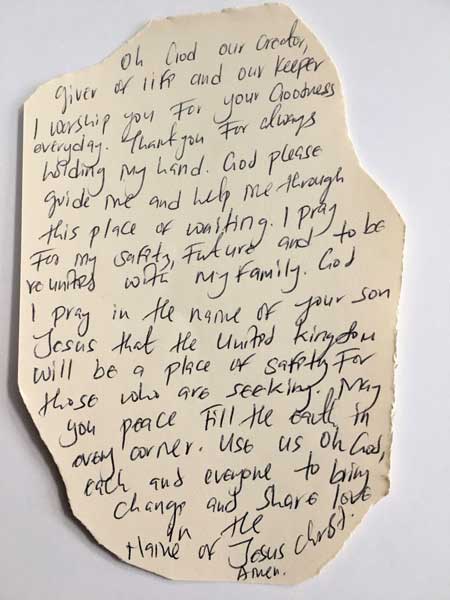 Oh God our Creator,
giver of life and our keeper
I worship you For your Goodness
everyday. Thank you For always
holding my hand. God please
guide me and help me through
this place of waiting. I pray
For my safety, Future and to be
reunited with my Family. God
I pray in the name of your son
Jesus that the United Kingdom
will be a place of safety For
those who are seeking. May
you peace Fill the earth in
every corner. Use us Oh God,
each and everyone to bring
change and share love
in the
Name of Jesus Christ.
Amen.